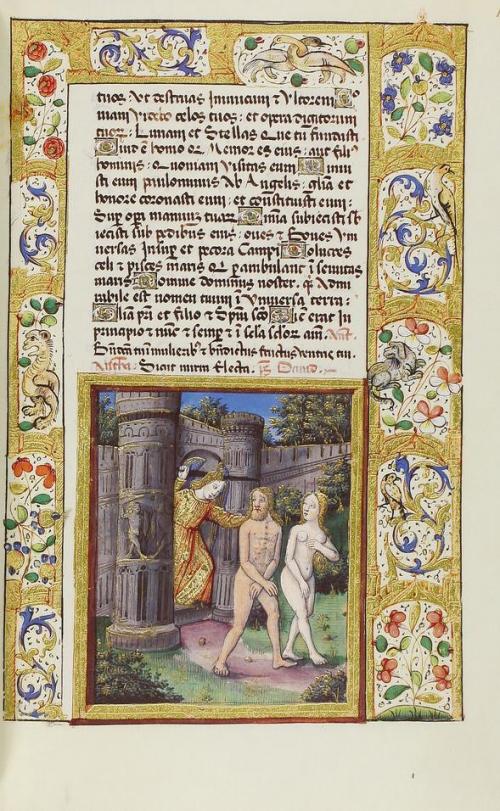 tuos Vt destruas Inimicum & Vltorem Qo
niam Videbo celos tuos: et opera digitorum
tuor: Lunam et Stellas Que tu fundasti
Quid ē homo Qr Memor es eius: aut fili
hominis: Quoniam Visitas eum Minui
sti eum paulominus Ab Angelis: glia et
honore coronasti eum: et constituisti eum:
Sup opa manuum tuar Oīnia subiecisti
iecisti sub pedibus eius: oues & Boues Vni
uersas Insup et pecora Campi Volucres
celi & pisces maris Q perambulant semitas
maris Domine dominus noster: Admi
rabile est nomen tuum i Vniuersa terra:
Glia pri et filio & Spui sco Sic erat In
principio & nūc & semper & i sclā sclor am. Ant.
Bndicta tu in mulierib & bndictus fructus ventris tui.
Sicut mirra Electa. ps Dauid.